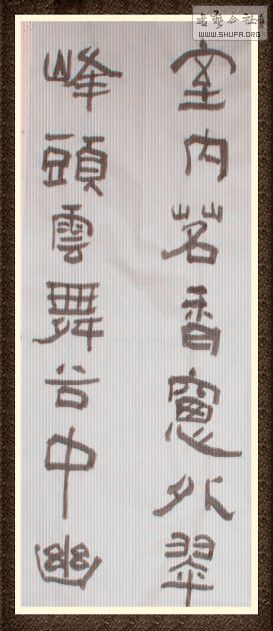 室内茗香窻外翠
峰頭雲舞谷中幽
WWW.SHUFA.ORG